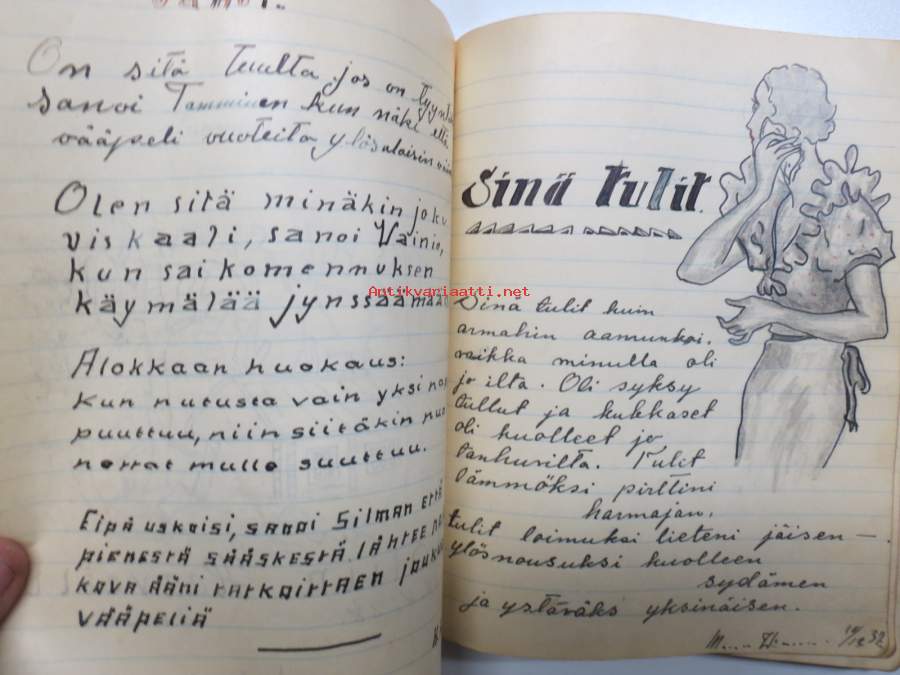 On sitä tuulta jos on tyyntä
sanoi Tamminen kun näki että
vääpeli vuoteita ylösalaisin
Olen sitä minäkin joku
viskaali, sanoi Vainio,
kun sai komennuksen
käymälää jynssäämää
Alokkaan huokaus:
Kun nutusta vain yksi nap
puuttuu, niin siitäkin
herrat mulle suuttuu.
Eipä uskoisi, sanoi Silman että
pienestä sääskestä lähtee
kova ääni tarkoittaen jouk
vääpeliä
Sinä tulit.
Sinä tulit kuin
armahin aamunkoi,
vaikka minulla oli
jo ilta. Oli syksy
tullut ja kukkaset
oli kuolleet jo
tanhuvilta. Tulit
lämmöksi pirttini
harmajan,
tulit loimuksi lieteni jäisen —
ylösnousuksi kuolleen
sydämen
ja ystäväks yksinäisen.
Antikvariaatti.net